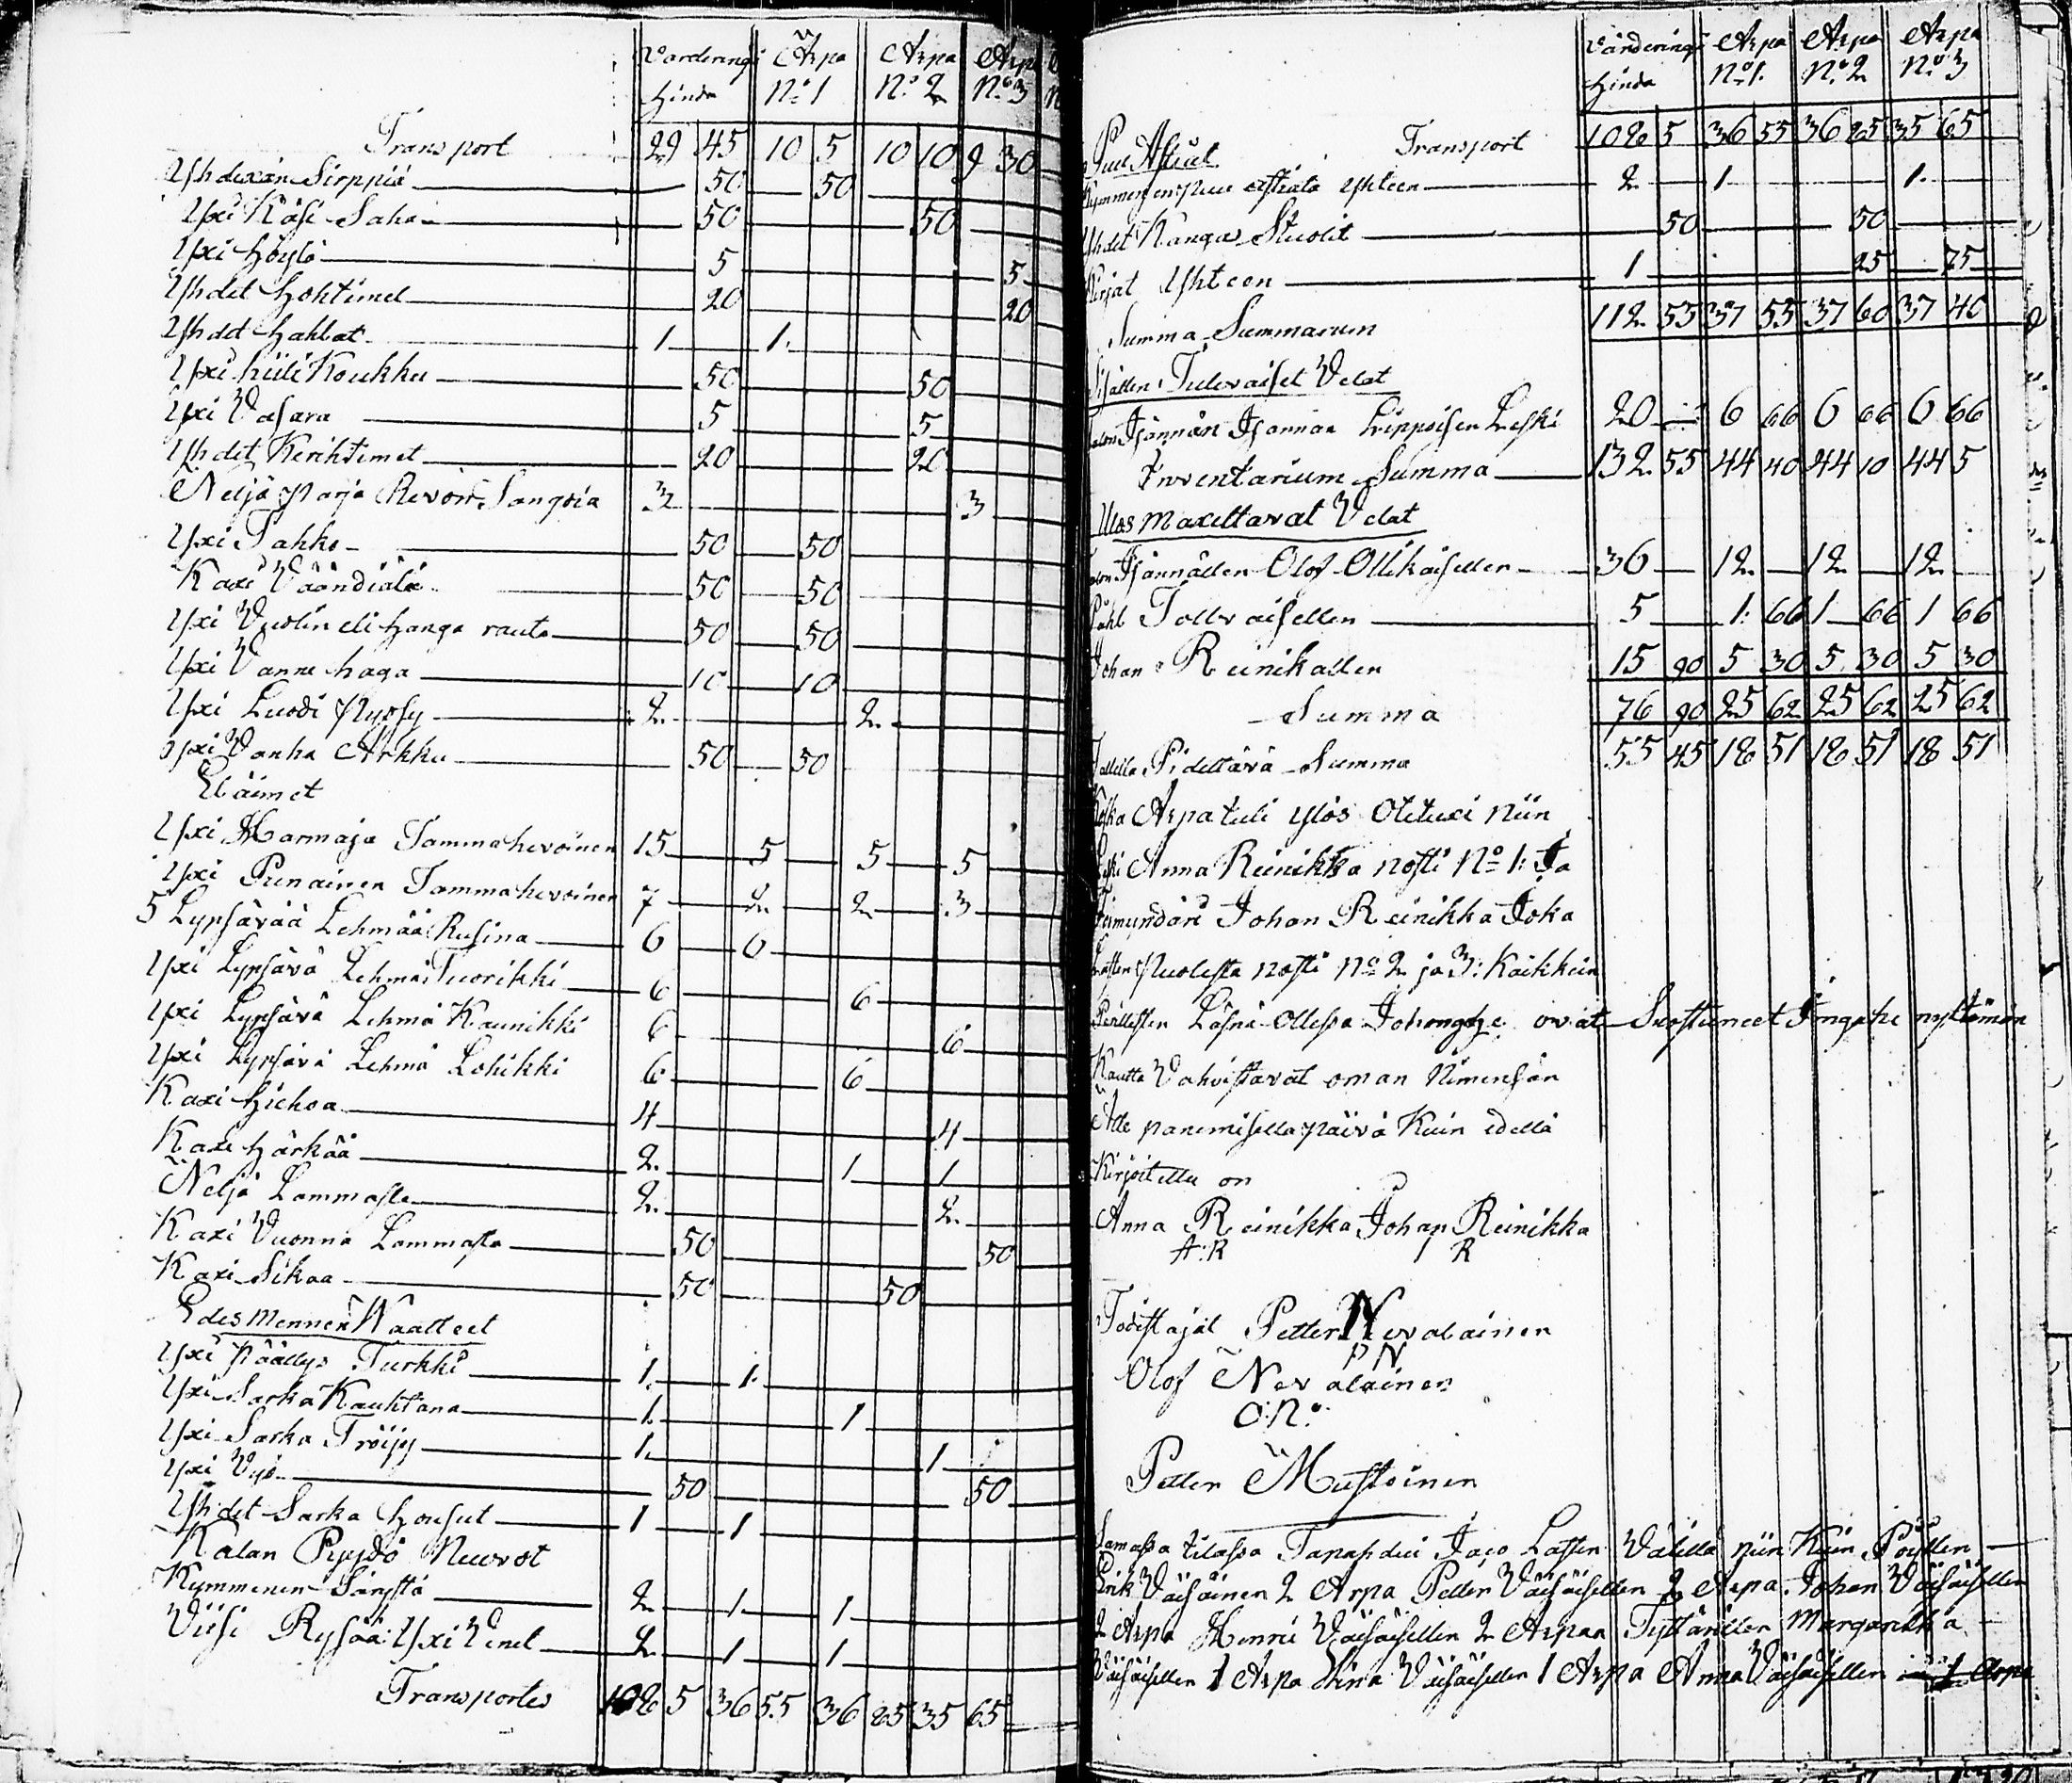 Värderings Arpa Arpa Arpa
Hinda No 1 No 2 No 3
Transport 29 45 10 5 10 10 9 30
Yhdexän Sirppiä 50 50
Yxi Käsi Saha 50 50
Yxi Höylä 5 5
Yhdet Hohtimet 20 20
Yhdet Hahlat 1 1
Yxi hiili Koukku 50 50
Yxi Vasara 5 5
Yhdet Kerihtimet 20 20
Neljä parja Revon Sangoia 3 3
Yxi Tahko 50 50
Kaxi Väändiätä 50 50
Yxi Vuolin eli hanga rauta 50 50
Yxi Vanne haga 10 10
Yxi Luodi Pyssy 2 2
Yxi Vanha Arkku 50 50
Eläimet
Yxi Harmaja Tammahevoinen 15 5 5 5
Yxi Punainen Tammahevoinen 7 2 2 3
5 Lypsävää Lehmää: Rusina 6 6
Yxi Lypsävä Lehmä Tuorikki 6 6
Yxi Lypsävä Lehmä Kaunikki 6 6
Yxi Lypsävä Lehmä Lohikki 6 6
Kaxi Hiehoa 4 4
Kaxi Härkää 2 1 1
Neljä Lammasta 2 2
Kaxi Vuonna Lammasta 50 50
Kaxi Sikaa 50 50
Edesmennen Waatteet
Yxi Päällys Turkki 1 1
Yxi Sarka Kauhtana 1 1
Yxi Sarka Tröijy 1 1
Yxi Vyö 50 50
Yhdet Sarka Housut 1 1
Kalan Pyydö Neuvot
Kymmenen Särystä 2 1 1
Viisi Rysää: Yxi Venet 2 1 1
Transportes 108 5 36 55 36 25 35 65
Värderings Arpa Arpa Arpa
Hinda No 1. No 2 No 3
Transport 108 5 36 55 36 25 35 65
Puu Astiat
Kymmenen puu astiata yhteen 2 1 1
Yhdet Kangas Stuolit 50 50
Kirjat Yhteen 1 25 75
Summa Summarum 112 55 37 55 37 60 37 40
Sisällen Tulevaiset Velat
Talon Isännän Lippoisen Leski 20 6 66 6 66 6 66
Inventarium Summa 132 55 44 40 44 10 44 5
Ulos maxettavat Velat
Talon Isännällen Olof Ollikaisellen 36 12 12 12
Påhl Tollvaisellen 5 1 66 1 66 1 66
Johan Reinikallen 15 90 5 30 5 30 5 30
Summa 76 90 25 62 25 62 25 62
Tallella Pidettävä Summa 55 45 18 51 18 51 18 51
Koska Arpa tuli ylös Otetuxi niin
Leski Anna Reinikka nosti No 1: Ja
Förmyndäri Johan Reinikka Joka
Lasten Puolesta nosti No 2 ja 3: Kaikkein
Perillisten Läsnä Ollessa Johongha ovat Suostuneet Jngahe nyttämän
Kautta Vahvistavat oman Nimensän
Alle panemisella päivä Kuin edellä
Kirjoitettu on
Anna Reinikka Johan Reinikka
A:R I R
Todistajat Petter Nevalainen
P N
Olof Nevalainen
O:N:
Petter Mustoinen
Samassa tilassa Tapahdui Jaco Lasten Välillä niin Kuin Pojillen
Erik Väisäinen 2 Arpa Petter Väisäisellen 2 Arpa Johan Väisäisellen
2 Arpa Henric Väisäisellen 2 Arpaa Tyttärillen Margareetha
Väisäisellen 1 Arpa Stina Väisäisellen 1 Arpa Anna Väisäisellen 1 Arpa